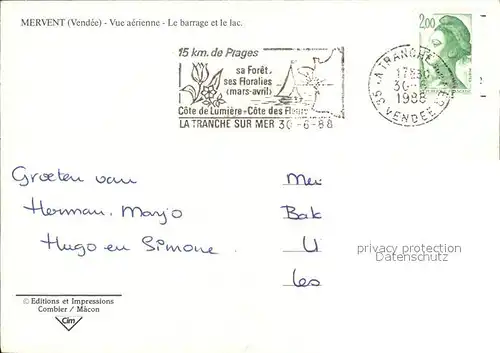 MERVENT (Vendée) - Vue aérienne - Le barrage et le lac.
2,00
15 km. de Plages
sa Forêt,
ses Floralies
(mars-avril)
Côte de Lumière-Côte des Fleurs
LA TRANCHE SUR MER 30-6-88
LA TRANCHE SUR MER
17H30
30-6
1988
85 VENDEE
Groeten van
Herman, Marjo
Hugo en Simone.
Bak
U
les
privacy protection
Datenschutz
© Editions et Impressions
Combier / Mâcon
Cim